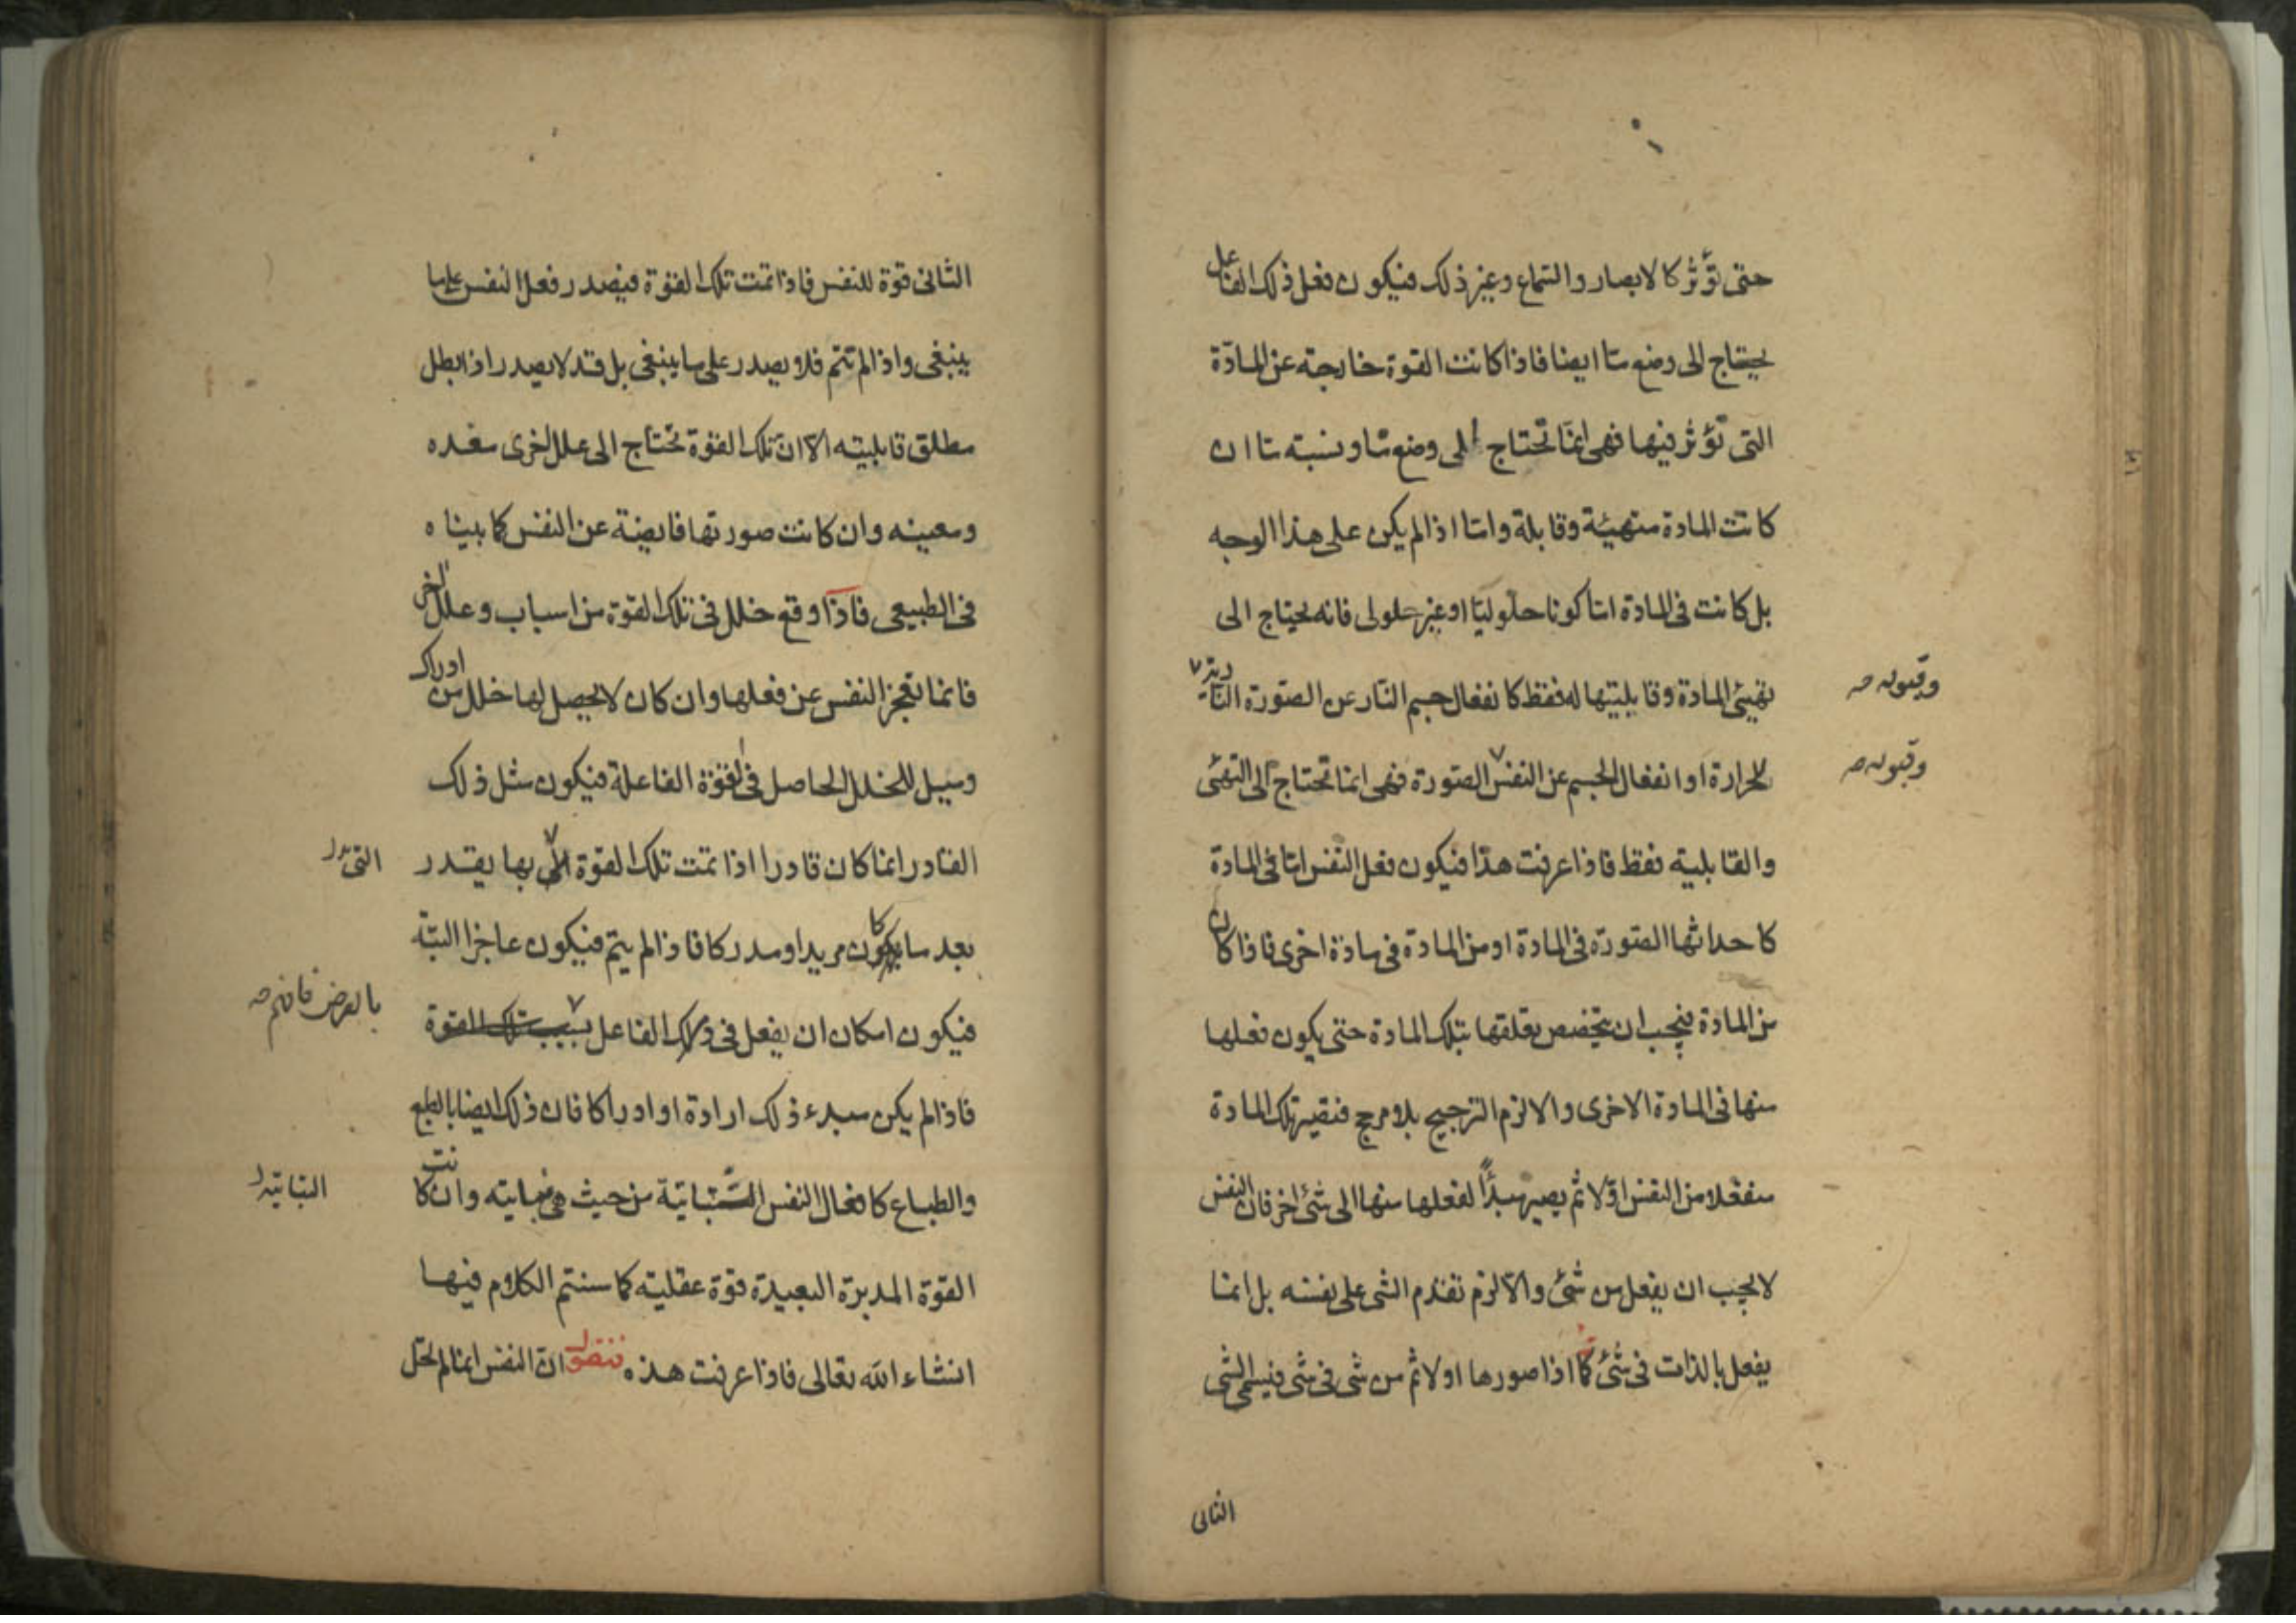 حتى تؤثر كالابصار والسماع وغير ذلك فيكون فعل ذلك الفاعل
يحتاج الى وضع ما ايضا فاذا كانت القوة خارجة عن المادة
التى تؤثر فيها فهى انما تحتاج الى وضع ما ونسبته ما ان
كانت المادة متهيئة وقابلة واما اذا لم يكن على هذا الوجه
بل كانت فى المادة اما كونا حلوليا او غير حلولى فانه يحتاج الى
تهيئ المادة وقابليتها له فقط كانفعال جسم النار عن الصورة النارية
وقبوله صح
للحرارة او انفعال الجسم عن النفس الصورة فهى انما تحتاج الى التهئى
وقبوله صح
والقابلية فقط فاذا عرفت هذا فيكون فعل النفس اما فى المادة
كاحداثها الصورة فى المادة او من المادة فى مادة اخرى فاذا كان
من المادة فيجب ان يتخصص تعلقها بتلك المادة حتى يكون فعلها
منها فى المادة الاخرى والا لزم الترجيح بلا مرجح فتصير تلك المادة
منفعلا من النفس اولا ثم يصير مبدأً لفعلها منها الى شئ اخر فان النفس
لا يجب ان يفعل من شئ والا لزم تقدم الشى على نفسه بل انما
يفعل بالذات فى شئ كما اذا صورها اولا ثم من شى فى شى فيسمى الشى
الثانى
الثانى قوة للنفس فاذا تمت تلك القوة فيصدر فعل النفس على ما
ينبغى واذا لم تتم فلا يصدر على ما ينبغى بل قد لا يصدر اذا بطل
مطلق قابليته الا ان تلك القوة تحتاج الى علل اخرى معده
ومعينه وان كانت صورتها فايضة عن النفس كما بيناه
فى الطبيعى فاذا وقع خلل فى تلك القوة من اسباب وعلل اخر
فانما تعجز النفس عن فعلها وان كان لا يحصل لها خلل من ادراك
وميل للخلل الحاصل فى القوة الفاعلة فيكون مثل ذلك
القادر انما كان قادرا اذا تمت تلك القوة التى بها يقدر
التى
بعد ما كان مريدا ومدركا فاذا لم يتم فيكون عاجزا البتة
فيكون امكان ان يفعل فى ذلك الفاعل بسبب تلك القوة
بالعرض فافهم صح
فاذا لم يكن مبدء ذلك ارادة او ادراكا فان ذلك ايضا بالطبع
والطباع كافعال النفس النباتية من حيث هى نباتيه وان كانت
النباتية
القوة المدبرة البعيدة قوة عقلية كما سنتم الكلام فيها
انشاء الله تعالى فاذا عرفت هذه فنقول ان النفس انما لم تحل